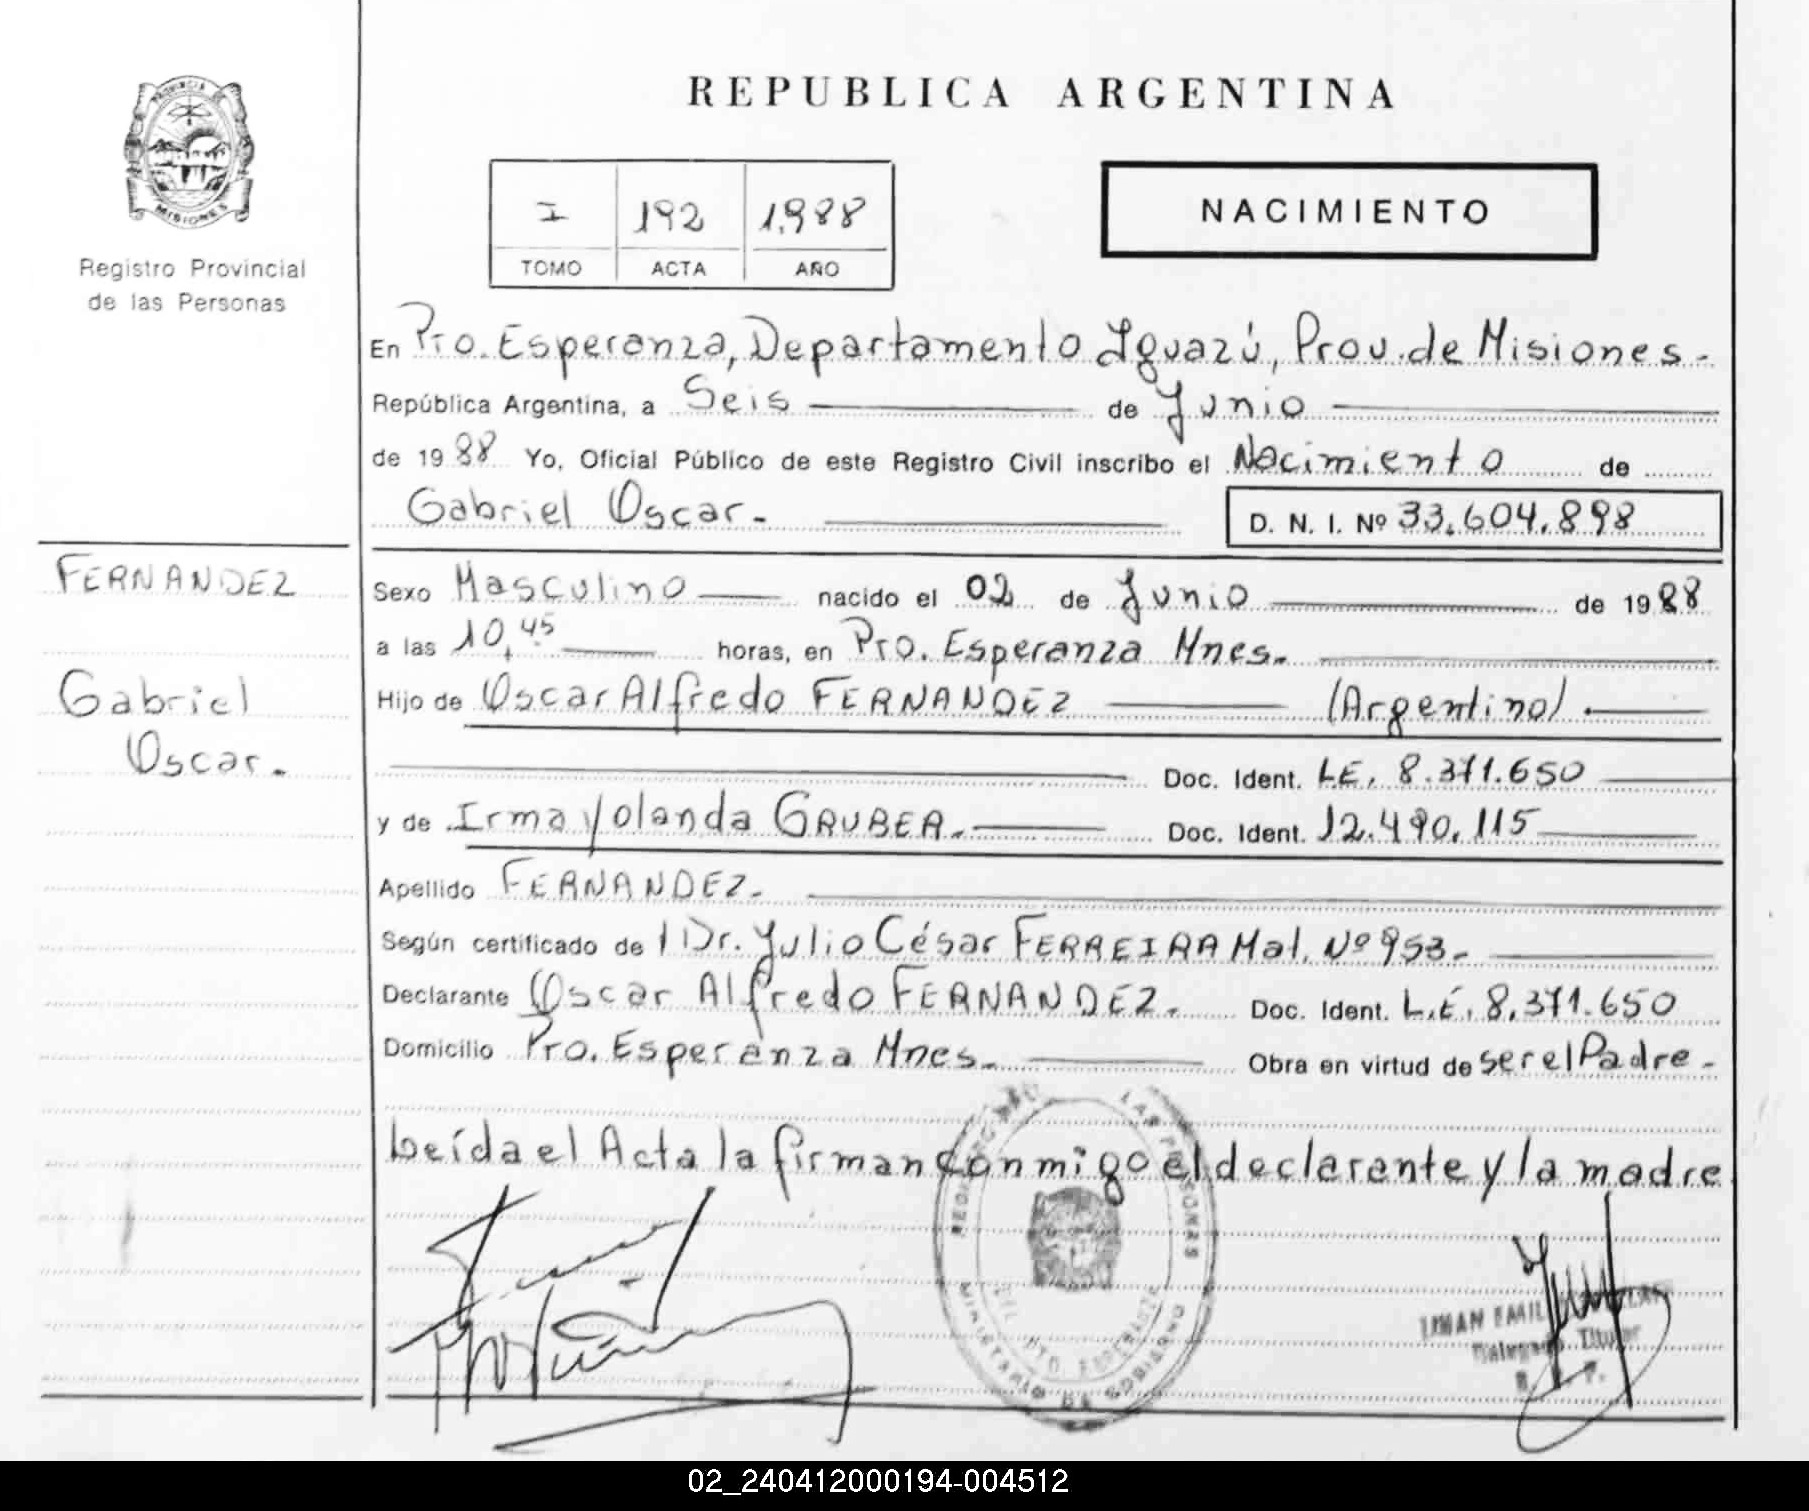 REPUBLICA ARGENTINA
PROVINCIA DE
MISIONES
Registro Provincial
de las Personas
I 192 1.988
TOMO ACTA AÑO
NACIMIENTO
En Pto. Esperanza, Departamento Iguazú, Prov. de Misiones.-
República Argentina, a Seis de Junio
de 1988 Yo, Oficial Público de este Registro Civil inscribo el Nacimiento de
Gabriel Oscar.-
D. N. I. Nº 33.604.898
FERNANDEZ
Gabriel
Oscar.
Sexo Masculino nacido el 02 de Junio de 1988
a las 10,45 horas, en Pto. Esperanza Mnes.
Hijo de Oscar Alfredo FERNANDEZ (Argentino).
Doc. Ident. LE. 8.371.650
y de Irma Yolanda GRUBER.- Doc. Ident. 12.490.115
Apellido FERNANDEZ.
Según certificado de Dr. Julio César FERREIRA Mat. Nº 953.-
Declarante Oscar Alfredo FERNANDEZ. Doc. Ident. L.E. 8.371.650
Domicilio Pto. Esperanza Mnes. Obra en virtud de ser el Padre.
Leída el Acta la firman conmigo el declarante y la madre
REGISTRO DE LAS PERSONAS
PTO. ESPERANZA
MINISTERIO DE GOBIERNO
Delegado Titular
02_240412000194-004512